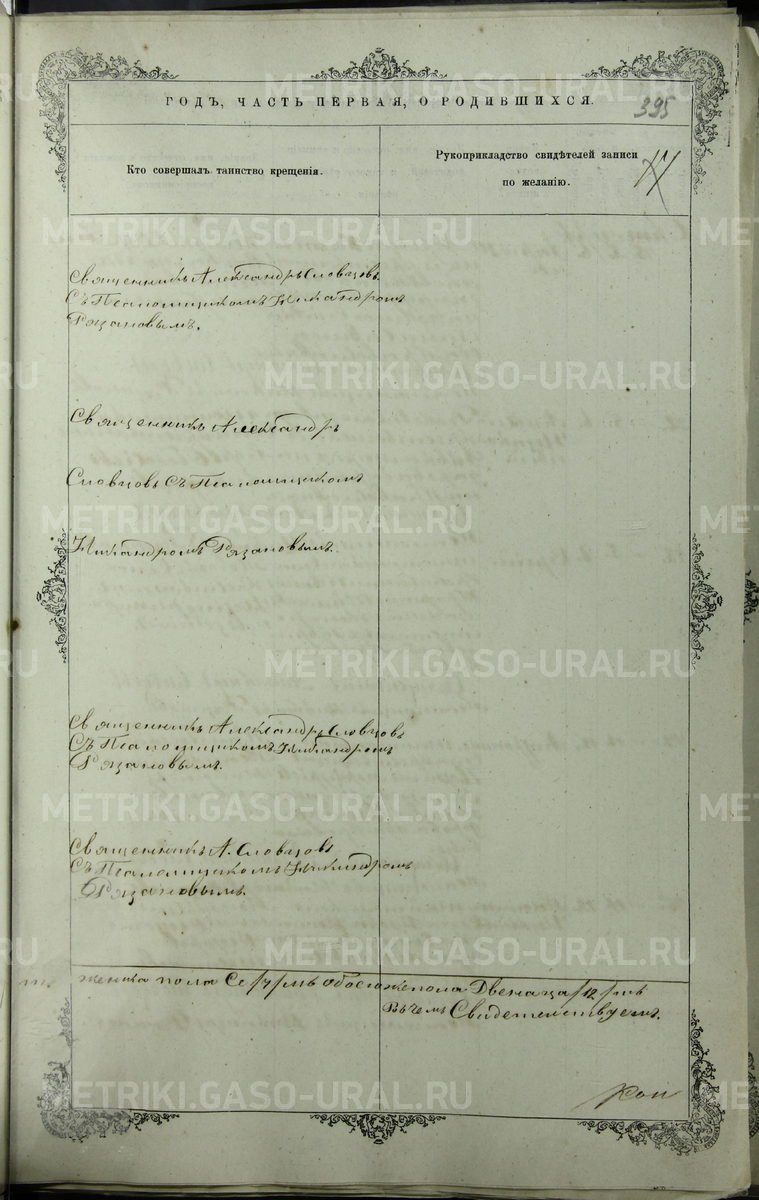 METRIKI.GASO-URAL.RU
ГОДЪ, ЧАСТЬ ПЕРВАЯ, О РОДИВШИХСЯ.
395
Кто совершалъ таинство крещенія.
Рукоприкладство свидѣтелей записи
по желанію.
Священникъ Александръ Словцовъ
Съ Псаломщикомъ Никандромъ
Рязановымъ.
Священникъ Александръ
Словцовъ Съ Псаломщикомъ
Никандромъ Рязановымъ.
Священникъ Александръ Словцовъ
Съ Псаломщикомъ Никандромъ
Рязановымъ.
Священникъ А. Словцовъ
Съ Псаломщикомъ Никандромъ
Рязановымъ.
женска пола Се/7/мь обоего же пола Двенаца/12/ть
Въ чемъ Свидетельствуемъ.